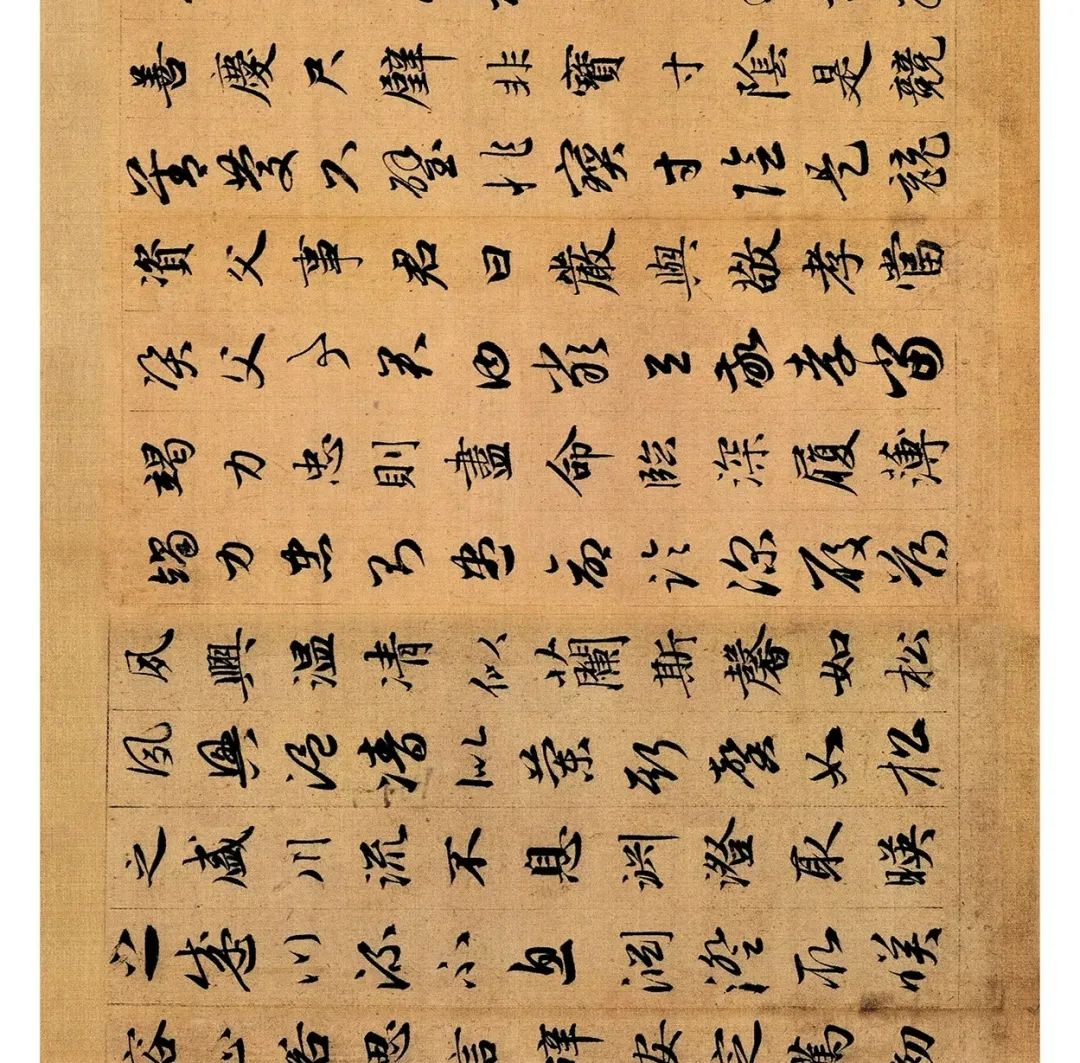 善慶尺璧非寶寸陰是競
善慶尺璧非寶寸陰是競
資父事君曰嚴與敬孝當
資父事君曰嚴與敬孝當
竭力忠則盡命臨深履薄
竭力忠則盡命臨深履薄
夙興温凊似蘭斯馨如松
夙興温凊似蘭斯馨如松
之盛川流不息淵澄取暎
之盛川流不息淵澄取暎
容止若思言辭安定篤初